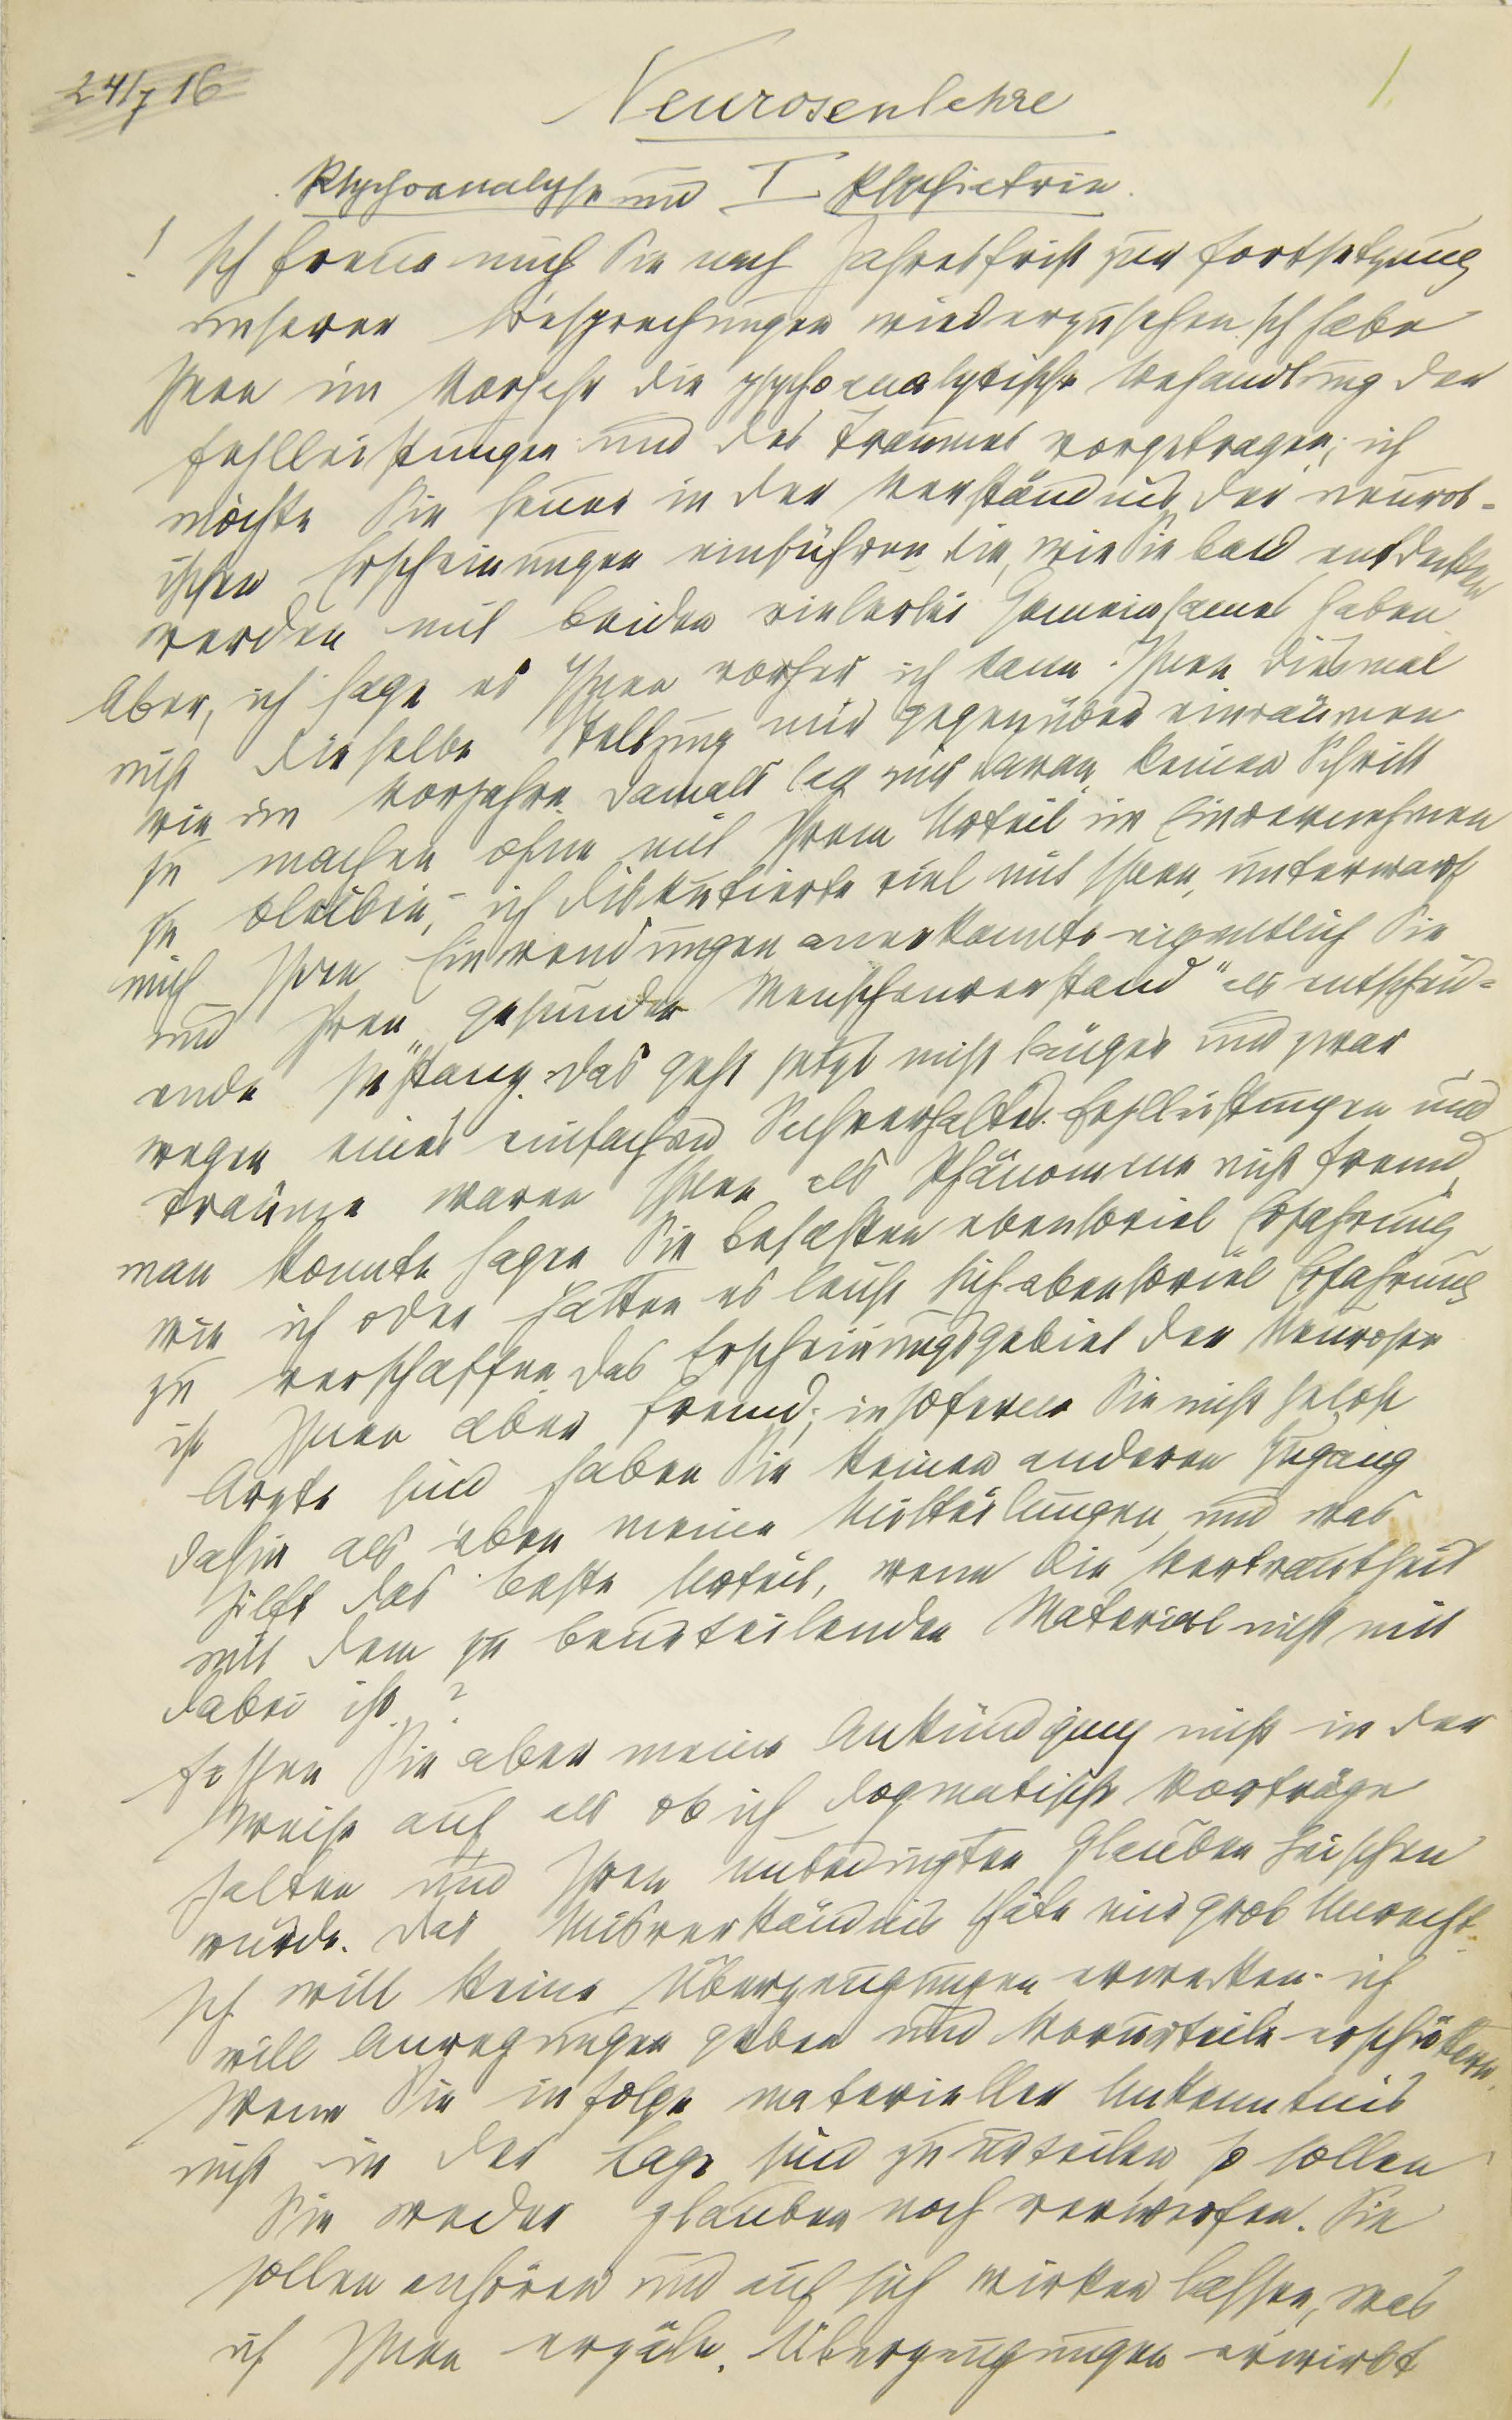 24/7 16
Neurosenlehre
1.
Psychoanalyse und I Psychiatrie.
! Ich freue mich Sie nach Jahresfrist zur Fortsetzung
unserer Besprechungen wiederzusehen. Ich habe
Ihnen im Vorjahr die psychoanalytische Behandlung der
Fehlleistungen und des Traumes vorgetragen; ich
möchte Sie heuer in das Verständnis der neurot-
ischen Erscheinungen einführen die, wie Sie bald entdecken
werden mit beiden vielerlei Gemeinsames haben
Aber, ich sage es Ihnen vorher ich kann Ihnen diesmal
nicht dieselbe Stellung mir gegenüber einräumen
wie im Vorjahre. Damals lag mir daran, keinen Schritt
zu machen ohne mit Ihrem Urteil im Einvernehmen
zu bleiben, ich diskutierte viel mit Ihnen, unterwarf
mich Ihren Einwendungen anerkannte eigentlich Sie
und Ihren „gesunden Menschenverstand" als entscheid-
ende Instanz. Das geht jetzt nicht länger und zwar
wegen eines einfachen Sachverhaltes. Fehlleistungen und
Träume waren Ihnen als Phänomene nicht fremd,
man konnte sagen Sie besaßen ebensoviel Erfahrung
wie ich oder hatten es leicht sich ebensoviel Erfahrung
zu verschaffen. Das Erscheinungsgebiet der Neurosen
ist Ihnen aber fremd; insoferne Sie nicht selbst
Ärzte sind haben Sie keinen anderen Zugang
dahin als eben meine Mitteilungen, und was
hilft das beste Urteil, wenn die Vertrautheit
mit dem zu beurteilenden Material nicht mit
dabei ist?
Fassen Sie aber meine Ankündigung nicht in der
Weise auf als ob ich dogmatische Vorträge
halten und Ihren unbedingten Glauben heischen
würde. Das Missverständnis thäte mir grob Unrecht.
Ich will keine Überzeugungen erwecken. ich
will Anregungen geben und Vorurteile erschüttern.
Wenn Sie infolge materieller Unkenntnis
nicht in der Lage sind zu urteilen so sollen
Sie weder glauben noch verwerfen. Sie
sollen anhören und auf sich wirken lassen, was
ich Ihnen erzähle. Überzeugungen erwirbt